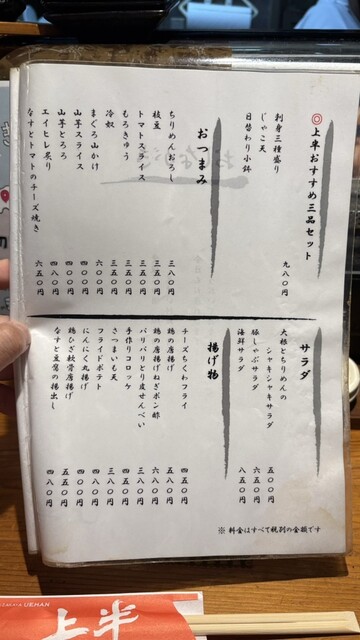 ◎上半おすすめ三品セット
刺身三種盛り
じゃこ天
日替わり小鉢
九八〇円
おつまみ
ちりめんおろし 三八〇円
枝豆 三五〇円
トマトスライス 三五〇円
もろきゅう 三五〇円
冷奴 三五〇円
まぐろ山かけ 六〇〇円
山芋スライス 四〇〇円
山芋とろろ 四〇〇円
エイヒレ炙り 四八〇円
なすとトマトのチーズ焼き 六五〇円
サラダ
大根とちりめんの
シャキシャキサラダ 五〇〇円
豚しゃぶサラダ 六五〇円
海鮮サラダ 八五〇円
揚げ物
チーズちくわフライ 四五〇円
鶏の唐揚げ 五八〇円
鶏の唐揚げねぎポン酢 六八〇円
パリパリとり皮せんべい 三八〇円
手作りコロッケ 四五〇円
さつまいも天 三八〇円
フライドポテト 四八〇円
にんにく丸揚げ 四〇〇円
鶏ひざ軟骨唐揚げ 五五〇円
なすと豆腐の揚出し 四八〇円
※ 料金はすべて税別の金額です
IZAKAYA UEHAN
上半